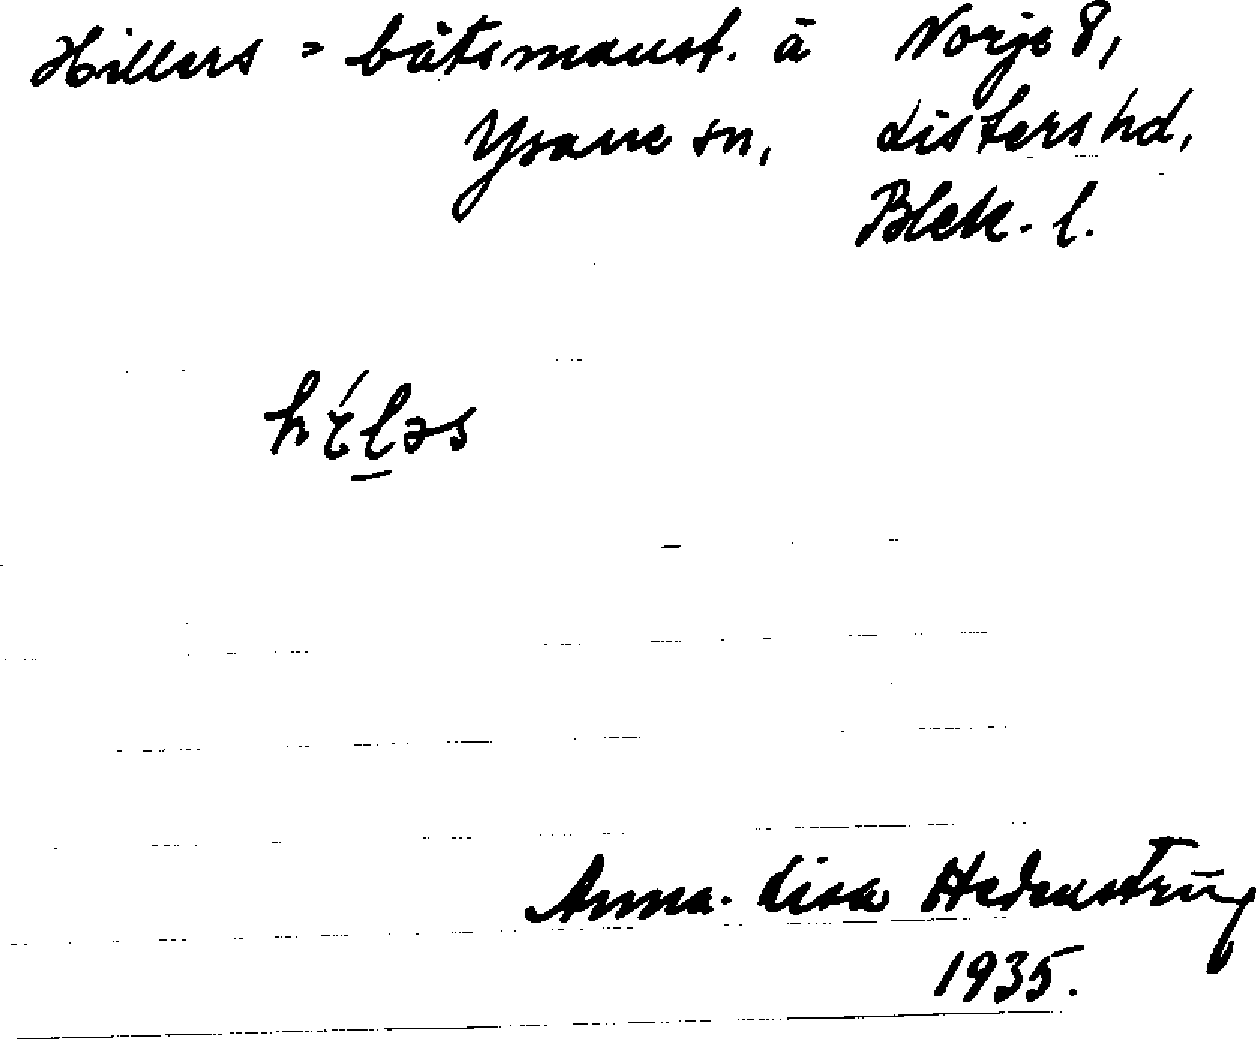 Hillers = båtsmanst. å Norje 8,
Ysane sn, Listers hd,
Blek. l.
hɪ́ləs
Anna-Lisa Hedenström
1935.